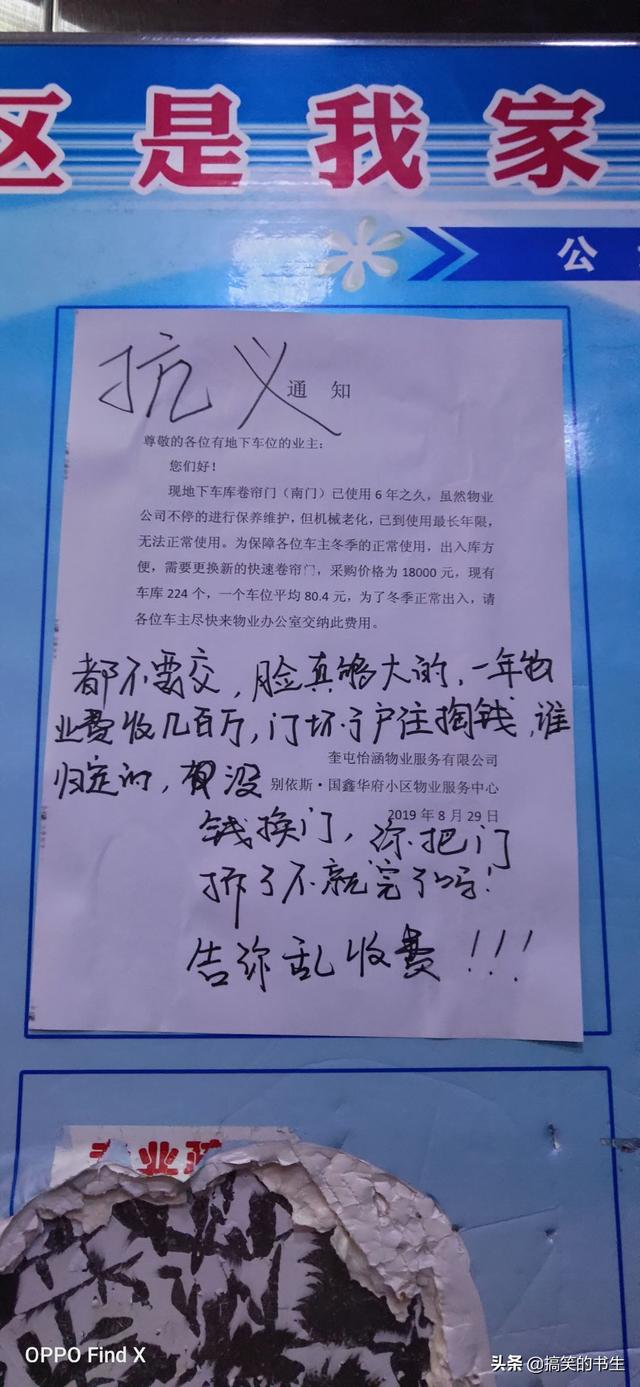 区是我家
公
抗义
通 知
尊敬的各位有地下车位的业主：
您们好！
现地下车库卷帘门（南门）已使用6年之久，虽然物业
公司不停的进行保养维护，但机械老化，已到使用最长年限，
无法正常使用。为保障各位车主冬季的正常使用，出入库方
便，需要更换新的快速卷帘门，采购价格为18000元，现有
车库224个，一个车位平均80.4元，为了冬季正常出入，请
各位车主尽快来物业办公室交纳此费用。
都不要交，脸真够大的，一年物
业费收几百万，门坏了户住掏钱，谁
奎屯怡涵物业服务有限公司
归定的，有没
别依斯·国鑫华府小区物业服务中心
2019年8月29日
钱换门，你把门
拆了不就完了吗！
告你乱收费！！！
OPPO Find X
头条 @搞笑的书生